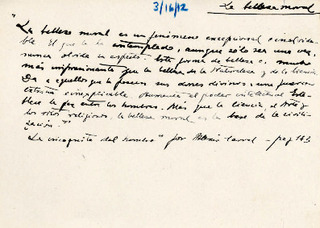 3/16/12
La belleza moral
"La belleza moral es un fenómeno excepcional e inolvida-
ble. El que la ha contemplado, aunque sólo sea una vez,
nunca olvida su aspecto. Esta forma de belleza es mucho
más impresionante que la belleza de la Naturaleza y de la Ciencia.
Da a aquellos que la poseen sus dones divinos, una fuerza
extraña e inexplicable. Aumenta el poder intelectual. Esta-
blece la paz entre los hombres. Más que la ciencia, el arte y
los ritos religiosos, la belleza moral es la base de la civili-
zación."
"La incógnita del hombre" por Alexis Carrel - pag 153